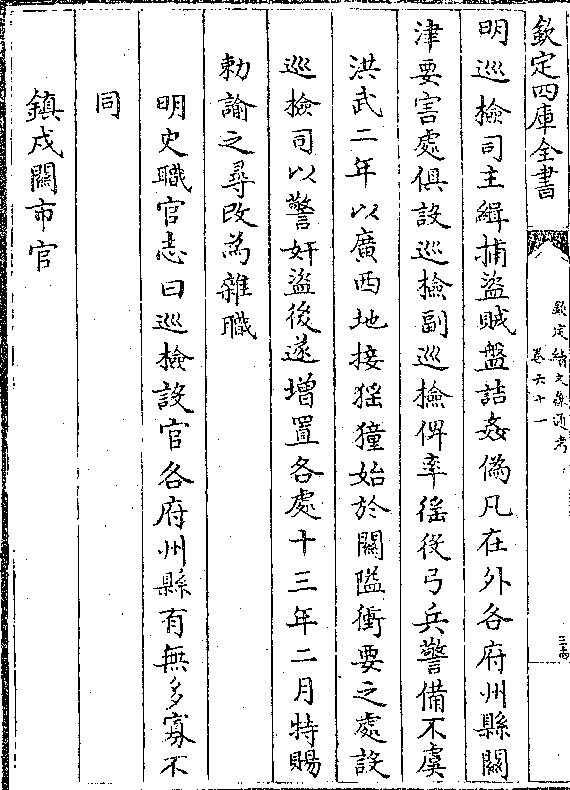 欽定四庫全書
欽定續文獻通考
卷六十一
明巡檢司主緝捕盜賊盤詰姦偽凡在外各府州縣關
津要害處俱設巡檢副巡檢俾率徭役弓兵警備不虞
洪武二年以廣西地接猺獞始於關隘衝要之處設
巡檢司以警奸盜後遂增置各處十三年二月特賜
勅諭之尋改為雜職
明史職官志曰巡檢設官各府州縣有無多寡不
同
鎮戍關市官